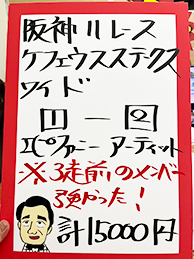 阪神11レース
ケフェウスステークス
ワイド
1 — 2
エピファニー アーティット
※3走前のメンバー
強かった!
計15000円